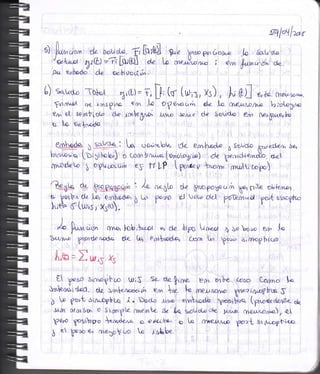 5) función de salida. Fi[ai(t)] Que proporciona la salida
actual yi(t) = Fi[ai(t)] de la neurona i en función de
su estado de activación
6) Salida Total yi(t) = Fi [fi (σ (wij, xj), hi (t)] esta neurona
Formal se inspira en la operación de la neurona biologica
en el sentido de integrar una serie de salida en respuesta
a la entrada
entrada y salida: La variable de entrada y salida pueden ser
binaria (Digitales) o continuas (analogicas) dependiendo del
modelo y aplicación ej MLP
Regla de propagación: La regla de propagación permite obtener
a partir de la entrada y los pesos el valor del potencial post sináptico
hi(t) σ(wij, xj(t)).
La función mas habitual es de tipo lineal y se basa en la
Suma ponderada de las entradas con los pesos sinápticos
hi(t) = Σ wij xj
El peso sinaptico wij se define en este caso como la
intensidad de interacción entre la neurona presinaptica j
y la post sinaptica i. Dada una entrada positiva (procedente de
un sensor o simplemente de la salida de una neurona), el
peso positivo tenderá a excitar a la neurona post sinaptica
y el peso es negativo la